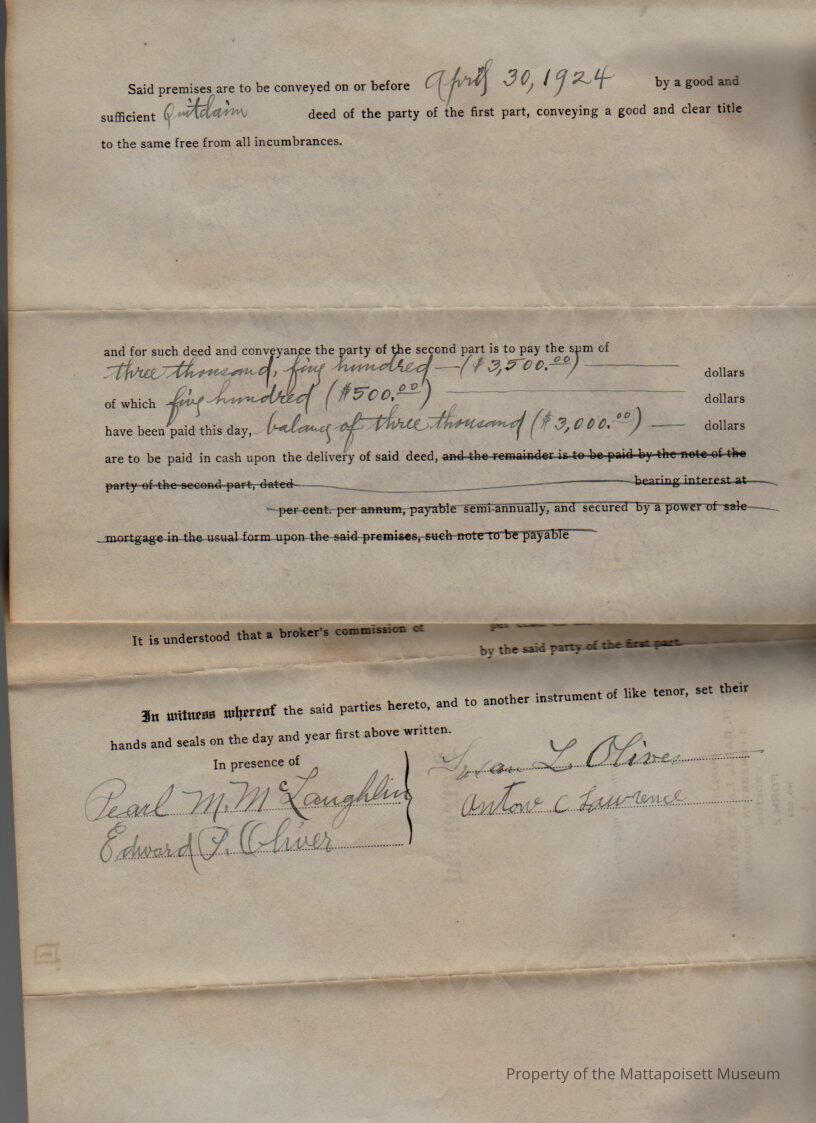 Said premises are to be conveyed on or before April 30, 1924 by a good and
sufficient Quitclaim deed of the party of the first part, conveying a good and clear title
to the same free from all incumbrances.
and for such deed and conveyance the party of the second part is to pay the sum of
three thousand, five hundred — ($3,500.00) dollars
of which five hundred ($500.00) dollars
have been paid this day, balance of three thousand ($3,000.00) — dollars
are to be paid in cash upon the delivery of said deed, and the remainder is to be paid by the note of the
party of the second part, dated bearing interest at
per cent. per annum, payable semi-annually, and secured by a power of sale
mortgage in the usual form upon the said premises, such note to be payable
It is understood that a broker's commission of
by the said party of the first part.
In witness whereof the said parties hereto, and to another instrument of like tenor, set their
hands and seals on the day and year first above written.
In presence of
Susan L. Oliver
Pearl M. McLaughlin
Antone C Lawrence
Edward P. Oliver
Property of the Mattapoisett Museum